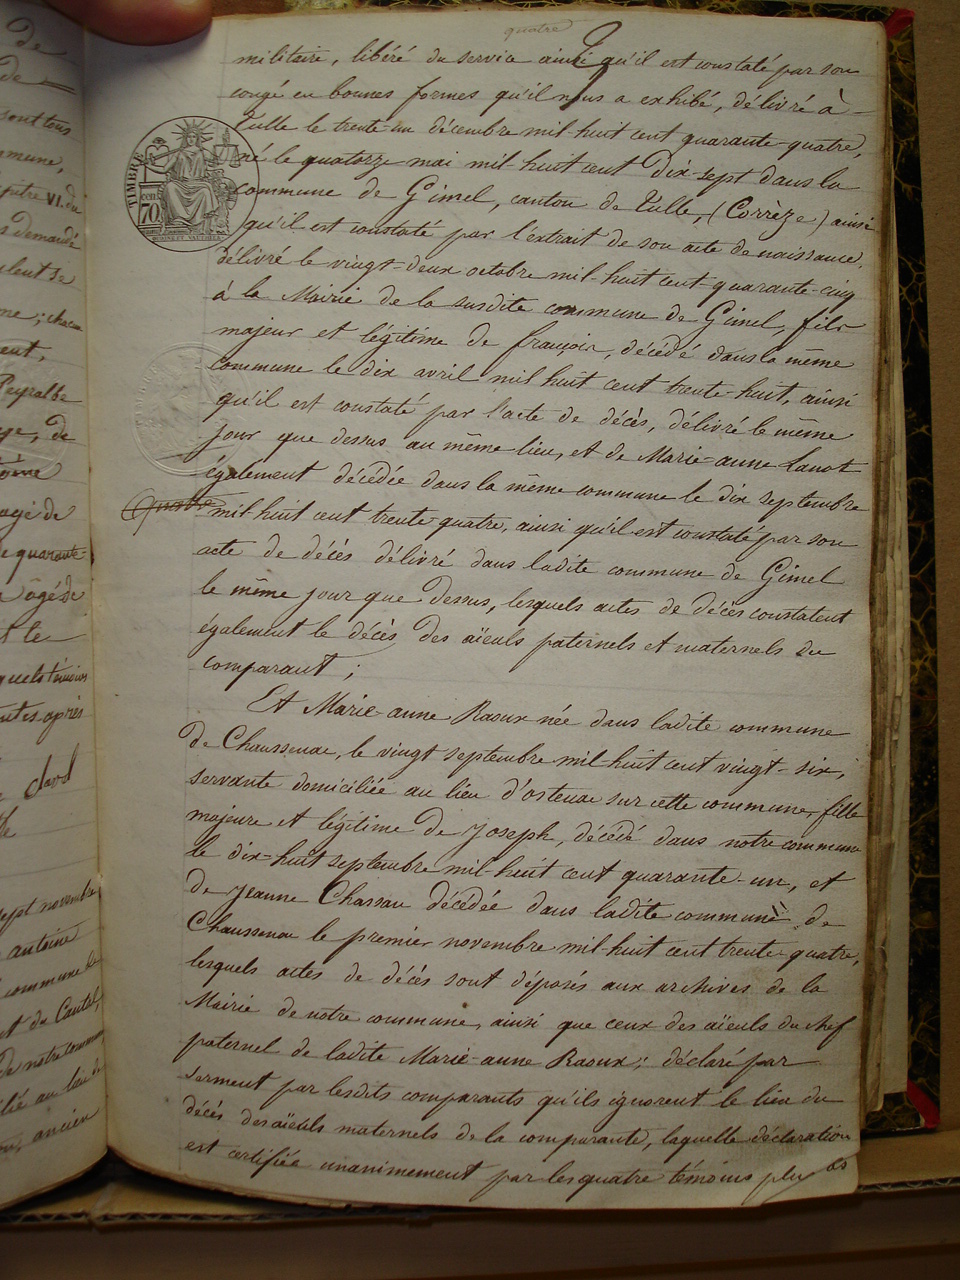 quatre
militaire, libéré du service ainsi qu'il est constaté par son
congé en bonnes formes qu'il nous a exhibé, délivré à
Tulle le trente-un décembre mil-huit cent quarante-quatre,
né le quatorze mai mil-huit cent dix-sept dans la
commune de Gimel, canton de Tulle, (Corrèze) ainsi
qu'il est constaté par l'extrait de son acte de naissance,
délivré le vingt-deux octobre mil-huit cent quarante-cinq
à la Mairie de la susdite commune de Gimel, fils
majeur et légitime de françois, décédé dans la même
commune le dix avril mil huit cent trente-huit, ainsi
qu'il est constaté par l'acte de décès, délivré le même
jour que dessus au même lieu, et de Marie-anne Lanot
également décédée dans la même commune le dix septembre
mil-huit cent trente-quatre, ainsi qu'il est constaté par son
acte de décès délivré dans ladite commune de Gimel
le même jour que dessus, lesquels actes de décès constatent
également le décès des aïeuls paternels et maternels du
comparant ;
Et Marie-anne Raoux née dans ladite commune
de Chaussenac, le vingt septembre mil huit cent vingt-six,
servante domiciliée au lieu d'ostenac sur cette commune, fille
majeure et légitime de Joseph, décédé dans notre commune
le dix-huit septembre mil-huit cent quarante-un, et
de Jeanne Chassau décédée dans ladite commune de
Chaussenac le premier novembre mil-huit cent trente-quatre,
lesquels actes de décès sont déposés aux archives de la
Mairie de notre commune, ainsi que ceux des aïeuls du chef
paternel de ladite Marie-anne Raoux ; déclaré par
serment par lesdits comparants qu'ils ignorent le lieu du
décès des aïeuls maternels de la comparante, laquelle déclaration
est certifiée unanimement par les quatre témoins plus bas
TIMBRE
cen
70
Quatre
de
de
sont tous
commune,
chapitre VI. du
demandé
veulent se
; chacun
Peyralbe
de
age de
quarante-
âgé de
et le
quels témoins
après
clavel
sept novembre
antoine
commune de
du Cantal,
de notre commune
au lieu de
ancien